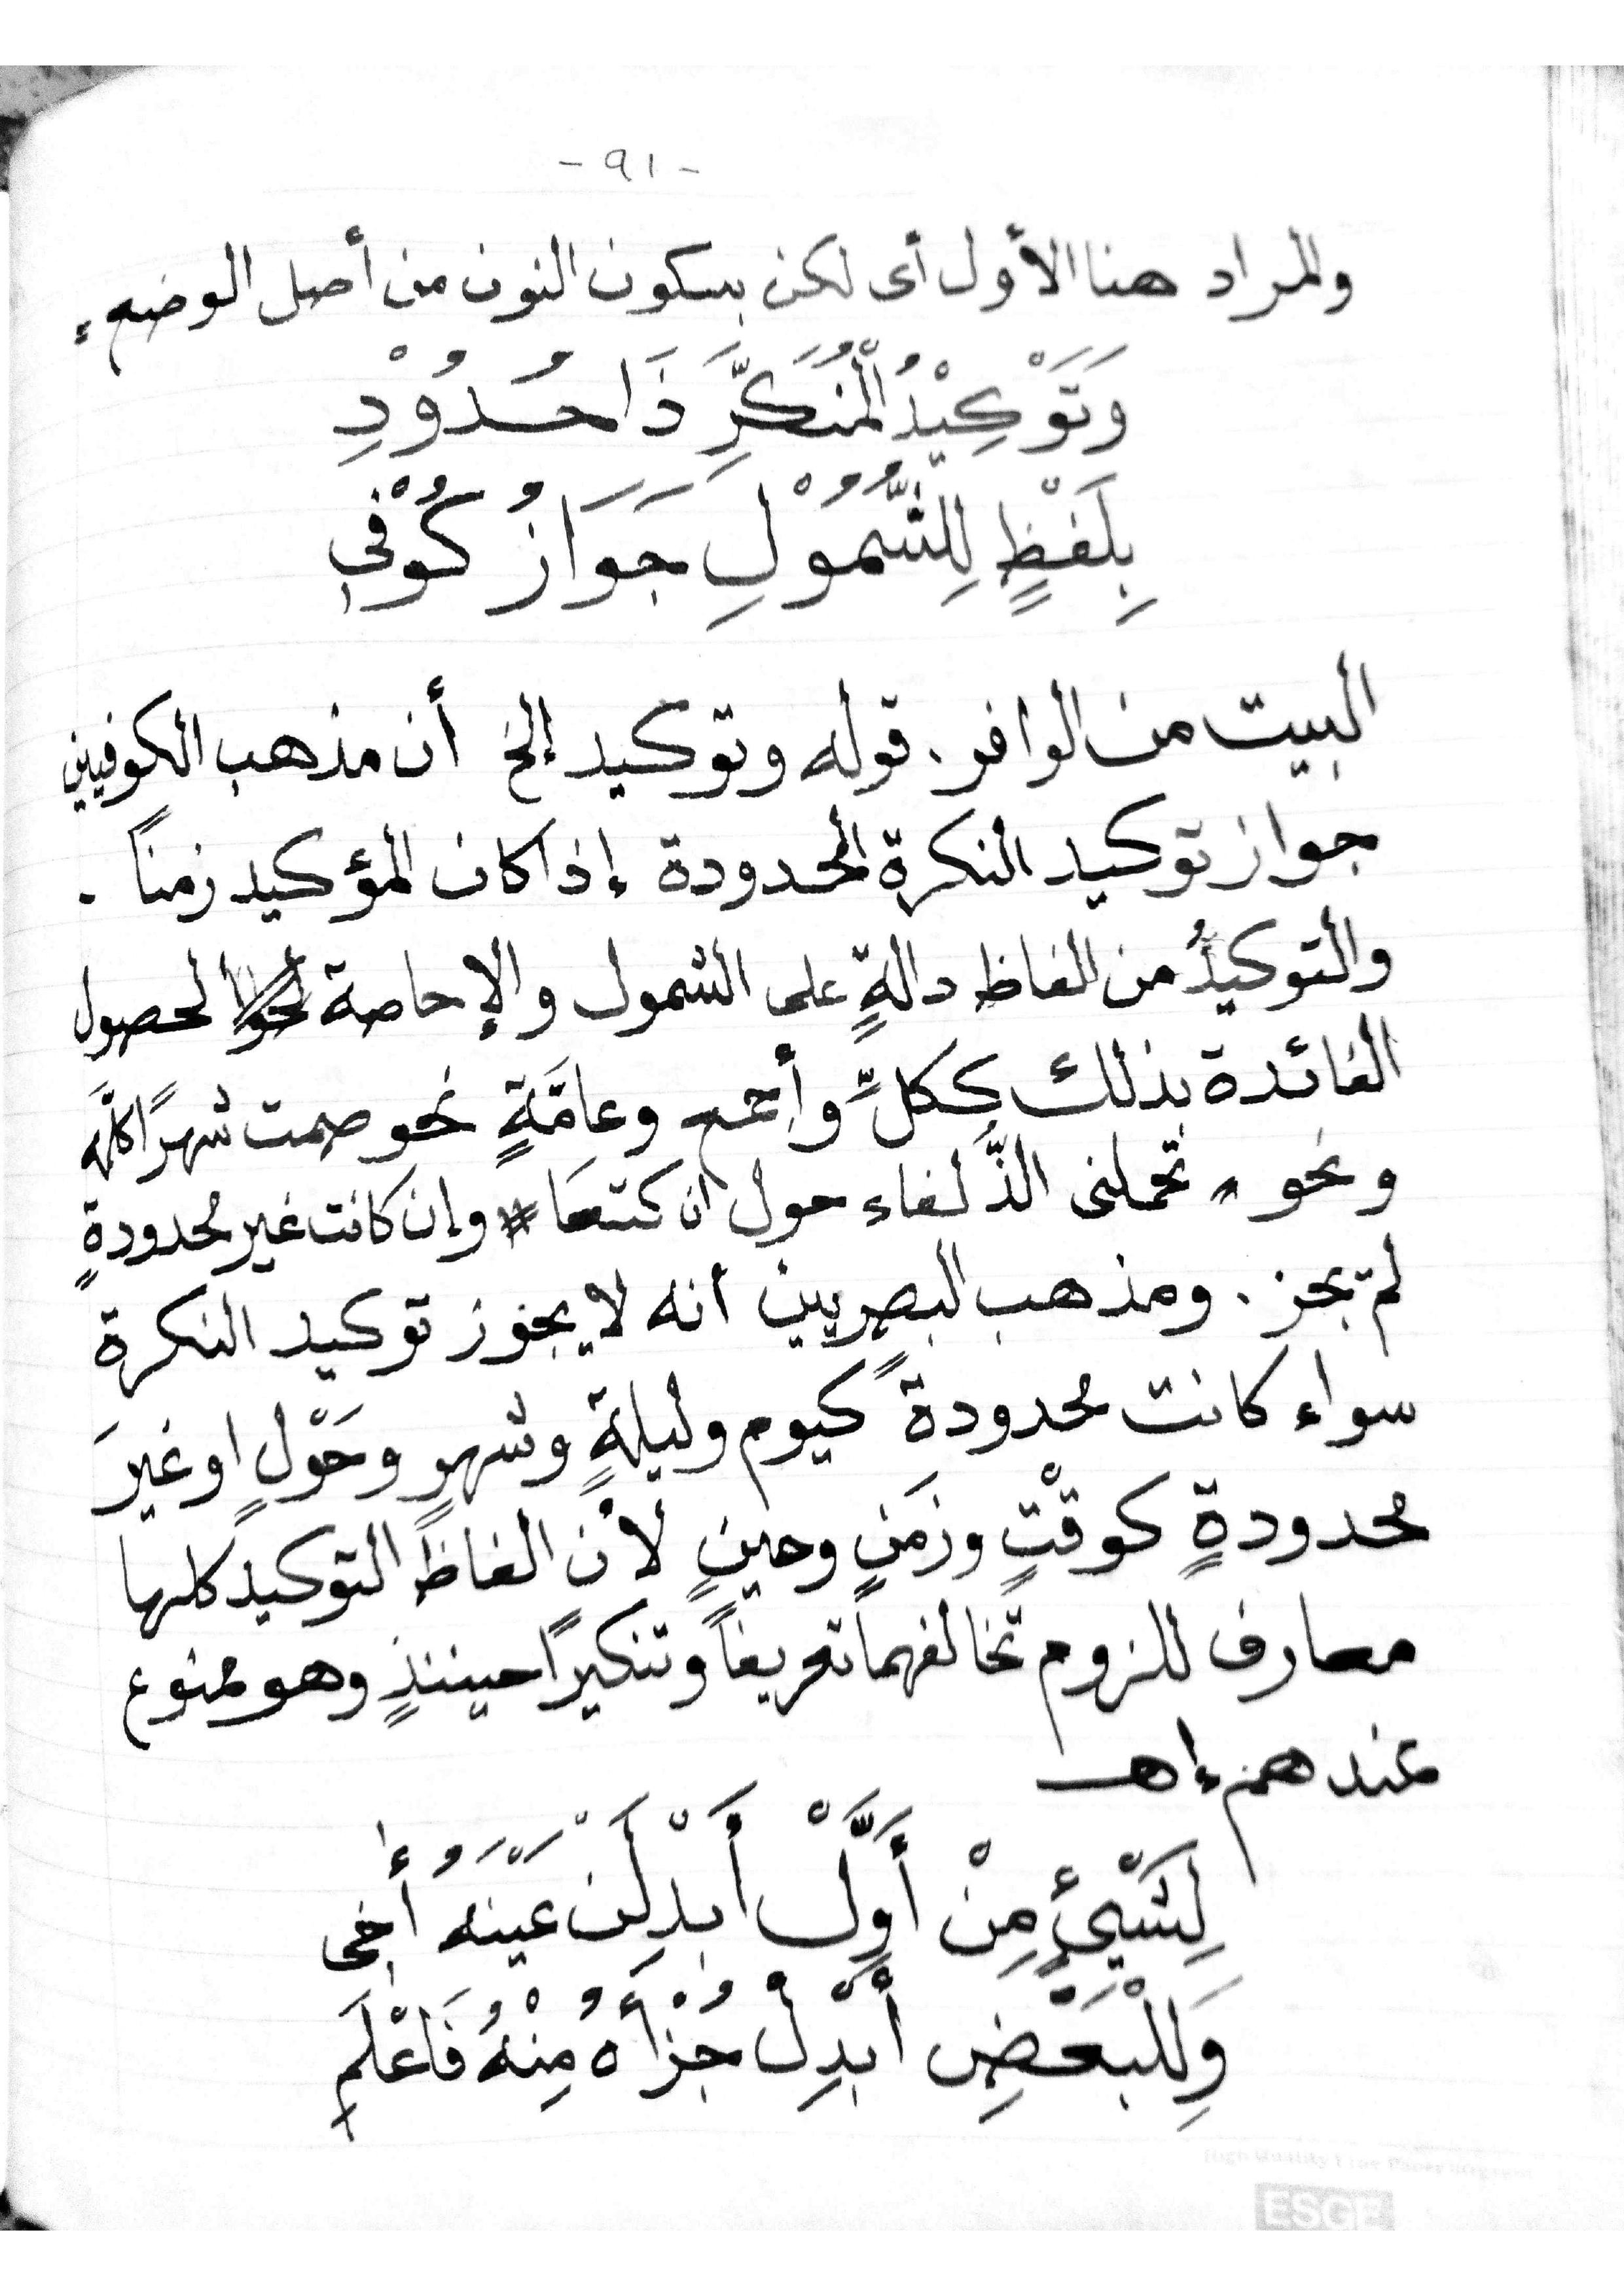 - ٩١ -
والمراد هنا الأول أى لكن بسكون النون من أصل الوضع ء
وَتَوْكِيْدُ الْمُنَكَّرِ ذَا حُدُوْدِ
بِلَفْظٍ لِلشُّمُوْلِ جَوَازُ كُوْفِي
البيت من الوافر . قوله وتوكيد إلخ أن مذهب الكوفيين
جواز توكيد النكرة المحدودة إذا كان المؤكيد زمناً .
والتوكيدُ من الفاظ دالةٍ على الشمول والإحاصة لحصول
الفائدة بذلك ككلٍّ وأجمع وعامّةٍ نحو صمت شهرًا كلَّه
ونحو " تحملنى الذَّلفاء حولا اكتعَا # وإن كانت غير محدودةٍ
لم تجز . ومذهب البصريين أنه لا يجوز توكيد النكرة
سواء كانت محدودةً كيوم وليلةٍ وشهرٍ وحَوْلٍ او غيرَ
محدودةٍ كوقْتٍ وزمَنٍ وحينٍ لأن الفاظَ التوكيد كلها
معارف للزوم تخالفهما تعريفاً وتنكيرًا حينئذٍ وهو ممنوع
عندهم ء إهـ
لِشَيْئٍ مِنْ أَوَّلْ أَبْدِلَنْ عَيْنَهُ أُخَى
وَلِلْبَعْضِ أَبْدِلْ جُزْأَهُ مِنْهُ فَاعْلَمِ
High Quality Line Paper
ESGE